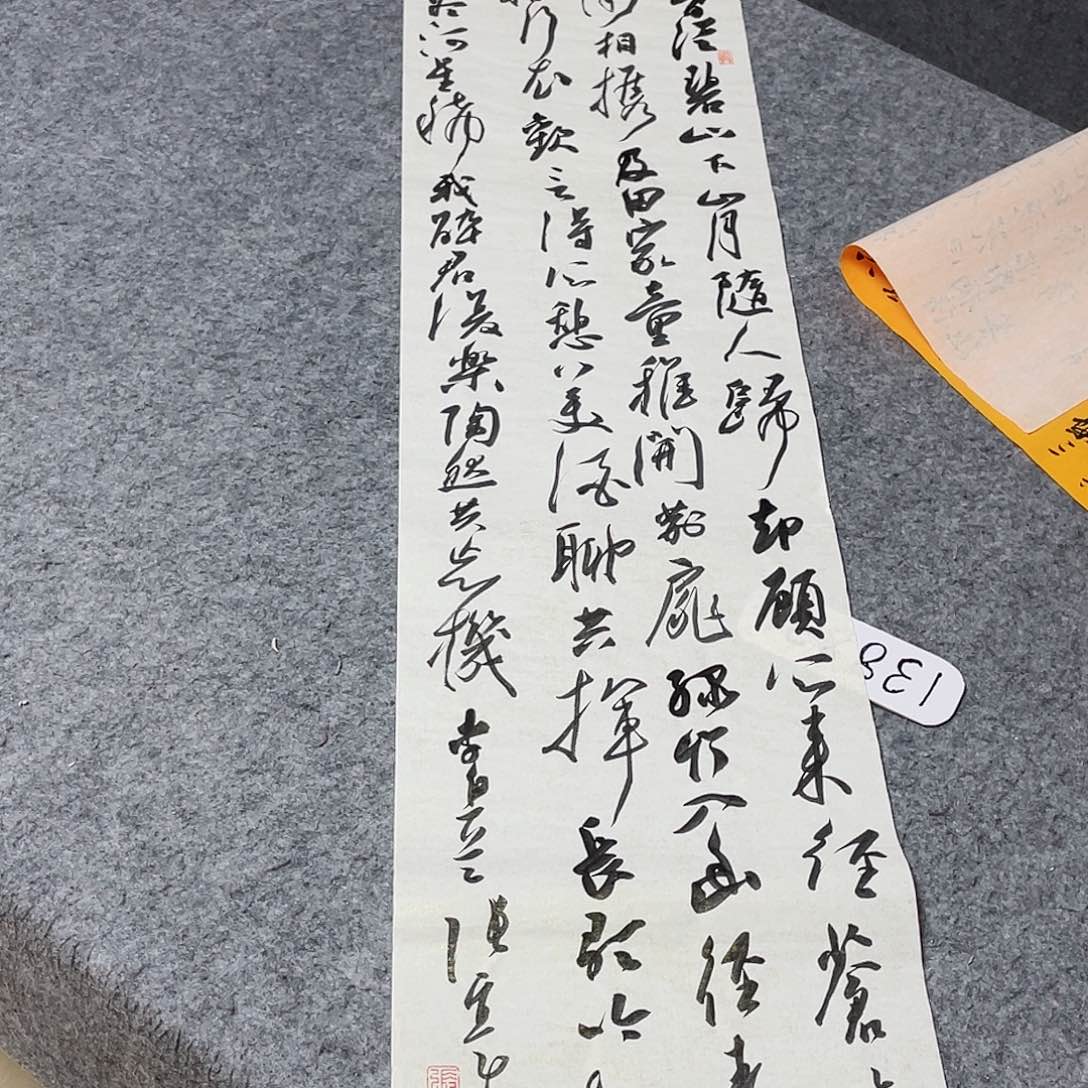 從碧山下山月隨人歸却顧所来徑蒼
相攜及田家童稚開荆扉綠竹入幽徑青
行衣歡言得所憩美酒聊共揮長歌吟
河星稀我醉君復樂陶然共忘機
李白
138